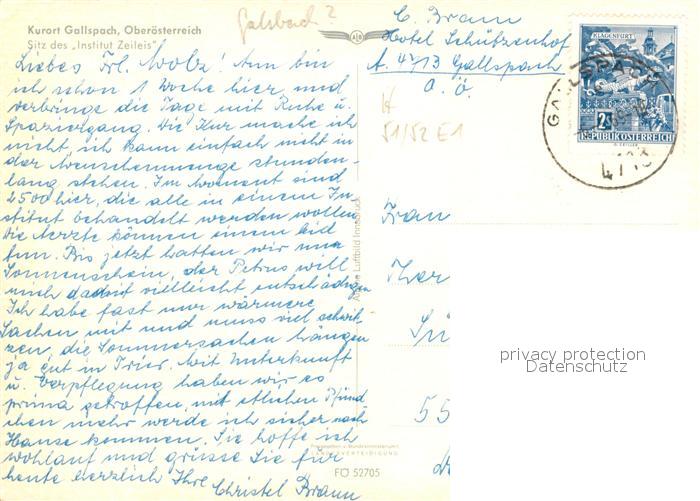 Kurort Gallspach, Oberösterreich
Sitz des „Institut Zeileis"
Galsbach?
Liebes Frl. Wolz! Nun bin
ich schon 1 Woche hier und
verbringe die Tage mit Ruhe u.
Spaziergang. Die Kur mache ich
nicht, ich kann einfach nicht in
der Menschenmenge stunden-
lang stehen. Im Moment sind
2500 hier, die alle in einem In-
stitut behandelt werden wollen
die Aerzte können einem leid
tun. Bis jetzt hatten wir nur
Sonnenschein, der Petrus will
mich damit vielleicht entschädigen
Ich habe fast nur wärmere
Sachen mit und muss viel schwit-
zen, die Sommersachen hängen
ja gut in Trier. Mit Unterkunft
u. Verpflegung haben wir es
prima getroffen, mit etlichen Pfünd
chen mehr werde ich sicher nach
Hause kommen. Sie hoffe ich
wohlauf und grüsse Sie für
heute herzlich Ihre
Christel Braun
C. Braun
Hotel Schützenhof
A. 4713 Gallspach
O.Ö.
H
51/52 E1
KLAGENFURT
2.50
REPUBLIK ÖSTERREICH
GALLSPACH
4713
Alpine Luftbild Innsbruck
Frau
Ther
55
LANDESVERTEIDIGUNG
FÖ 52705
privacy protection
Datenschutz